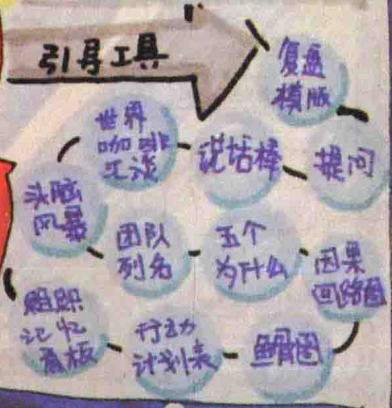 引导工具
复盘
模版
世界
咖啡
汇谈
说话棒
提问
头脑
风暴
团队
列名
五个
为什么
因果
回路图
组织
记忆
看板
行动
计划表
鱼骨图